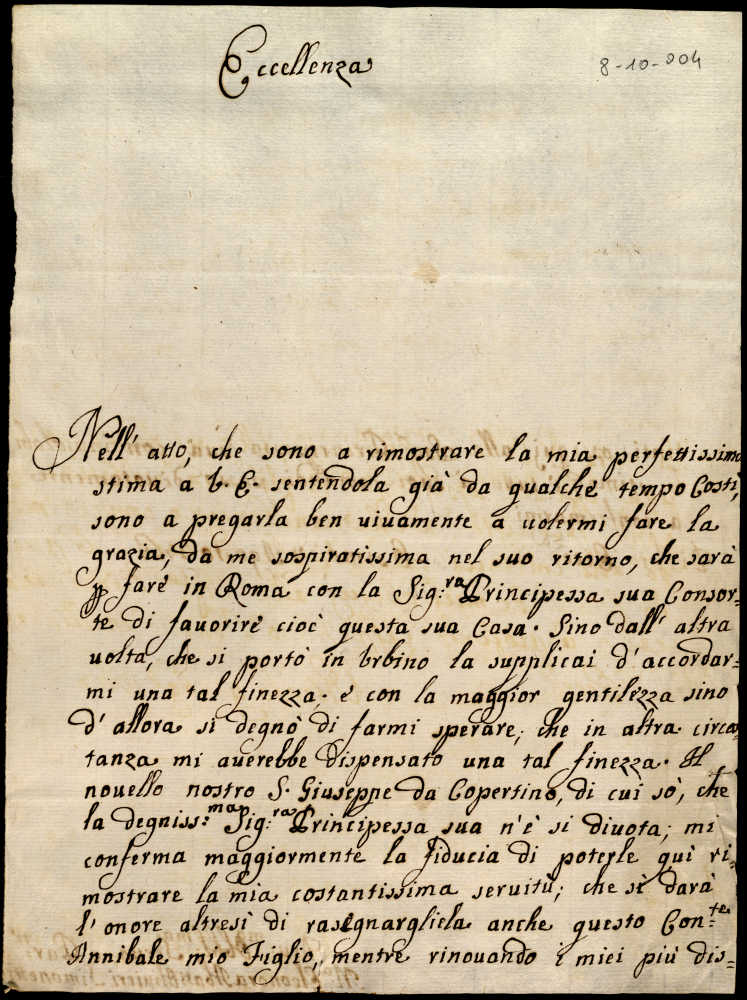 Eccellenza
8-10-904
Nell' atto, che sono a rimostrare la mia perfettissima
stima a V. E. sentendola già da qualche tempo Costì,
sono a pregarla ben uiuamente a uolermi fare la
grazia, da me sospiratissima nel suo ritorno, che sarà
p fare in Roma con la Sig.ra Principessa sua Consor-
te di fauorire cioè questa sua Casa. Sino dall' altra
uolta, che si portò in Vrbino la supplicai d'accordar-
mi una tal finezza; e con la maggior gentilezza sino
d'allora si degnò di farmi sperare, che in altra circos-
tanza mi auerebbe dispensato una tal finezza. Il
nouello nostro S. Giuseppe da Copertino, di cui sò, che
la degniss.ma Sig.ra Principessa sua n'è sì diuota, mi
conferma maggiormente la fiducia di poterle quì ri-
mostrare la mia costantissima seruitù; che si darà
l'onore altresì di rassegnargliela anche questo Con.te
Annibale mio Figlio, mentre rinouando i miei più dis-